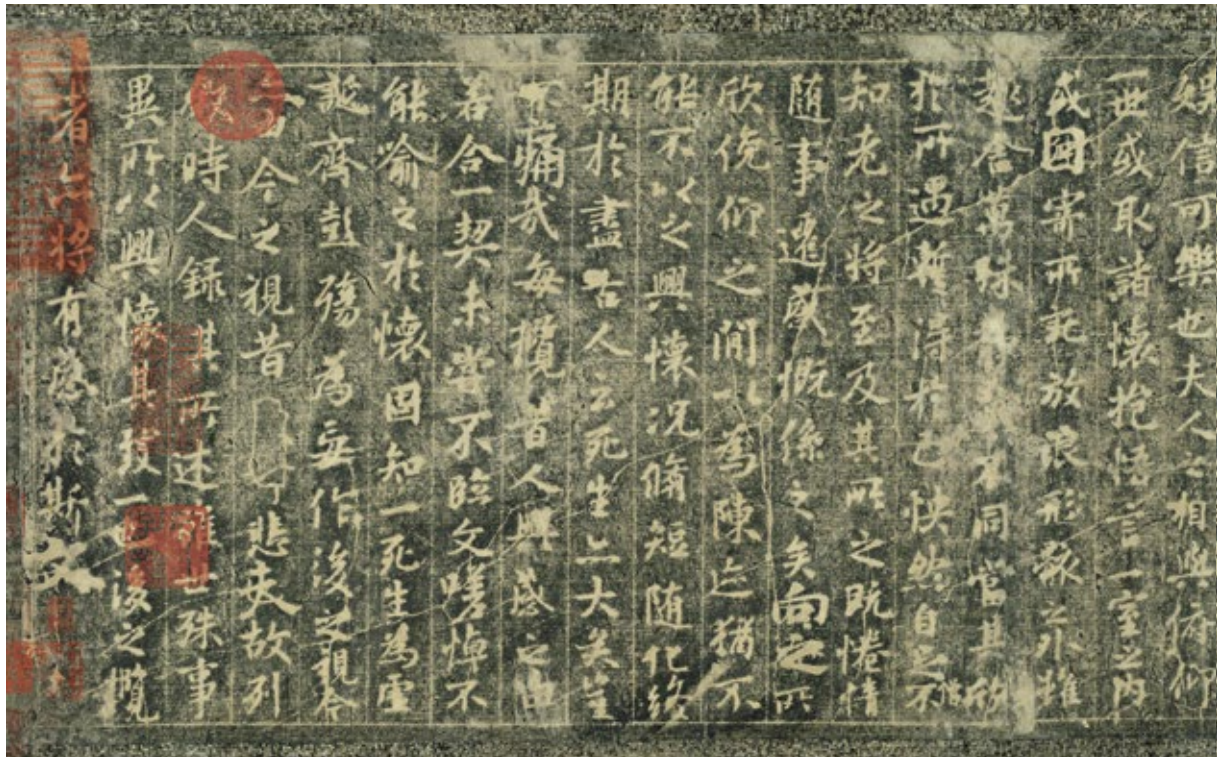 娛信可樂也夫人之相與俯仰
一世或取諸懷抱悟言一室之內
或因寄所託放浪形骸之外雖
趣舍萬殊不同當其欣
於所遇暫得於己快然自足不
知老之將至及其所之既惓情
隨事遷感慨係之矣向之所
欣俛仰之閒以為陳迹猶不
能不以之興懷況脩短隨化終
期於盡古人云死生亦大矣豈
不痛哉每攬昔人興感之由
若合一契未嘗不臨文嗟悼不
能喻之於懷固知一死生為虛
誕齊彭殤為妄作後之視今
亦由今之視昔悲夫故列
敘時人錄其所述雖世殊事
異所以興懷其致一也後之攬
者亦將有感於斯文